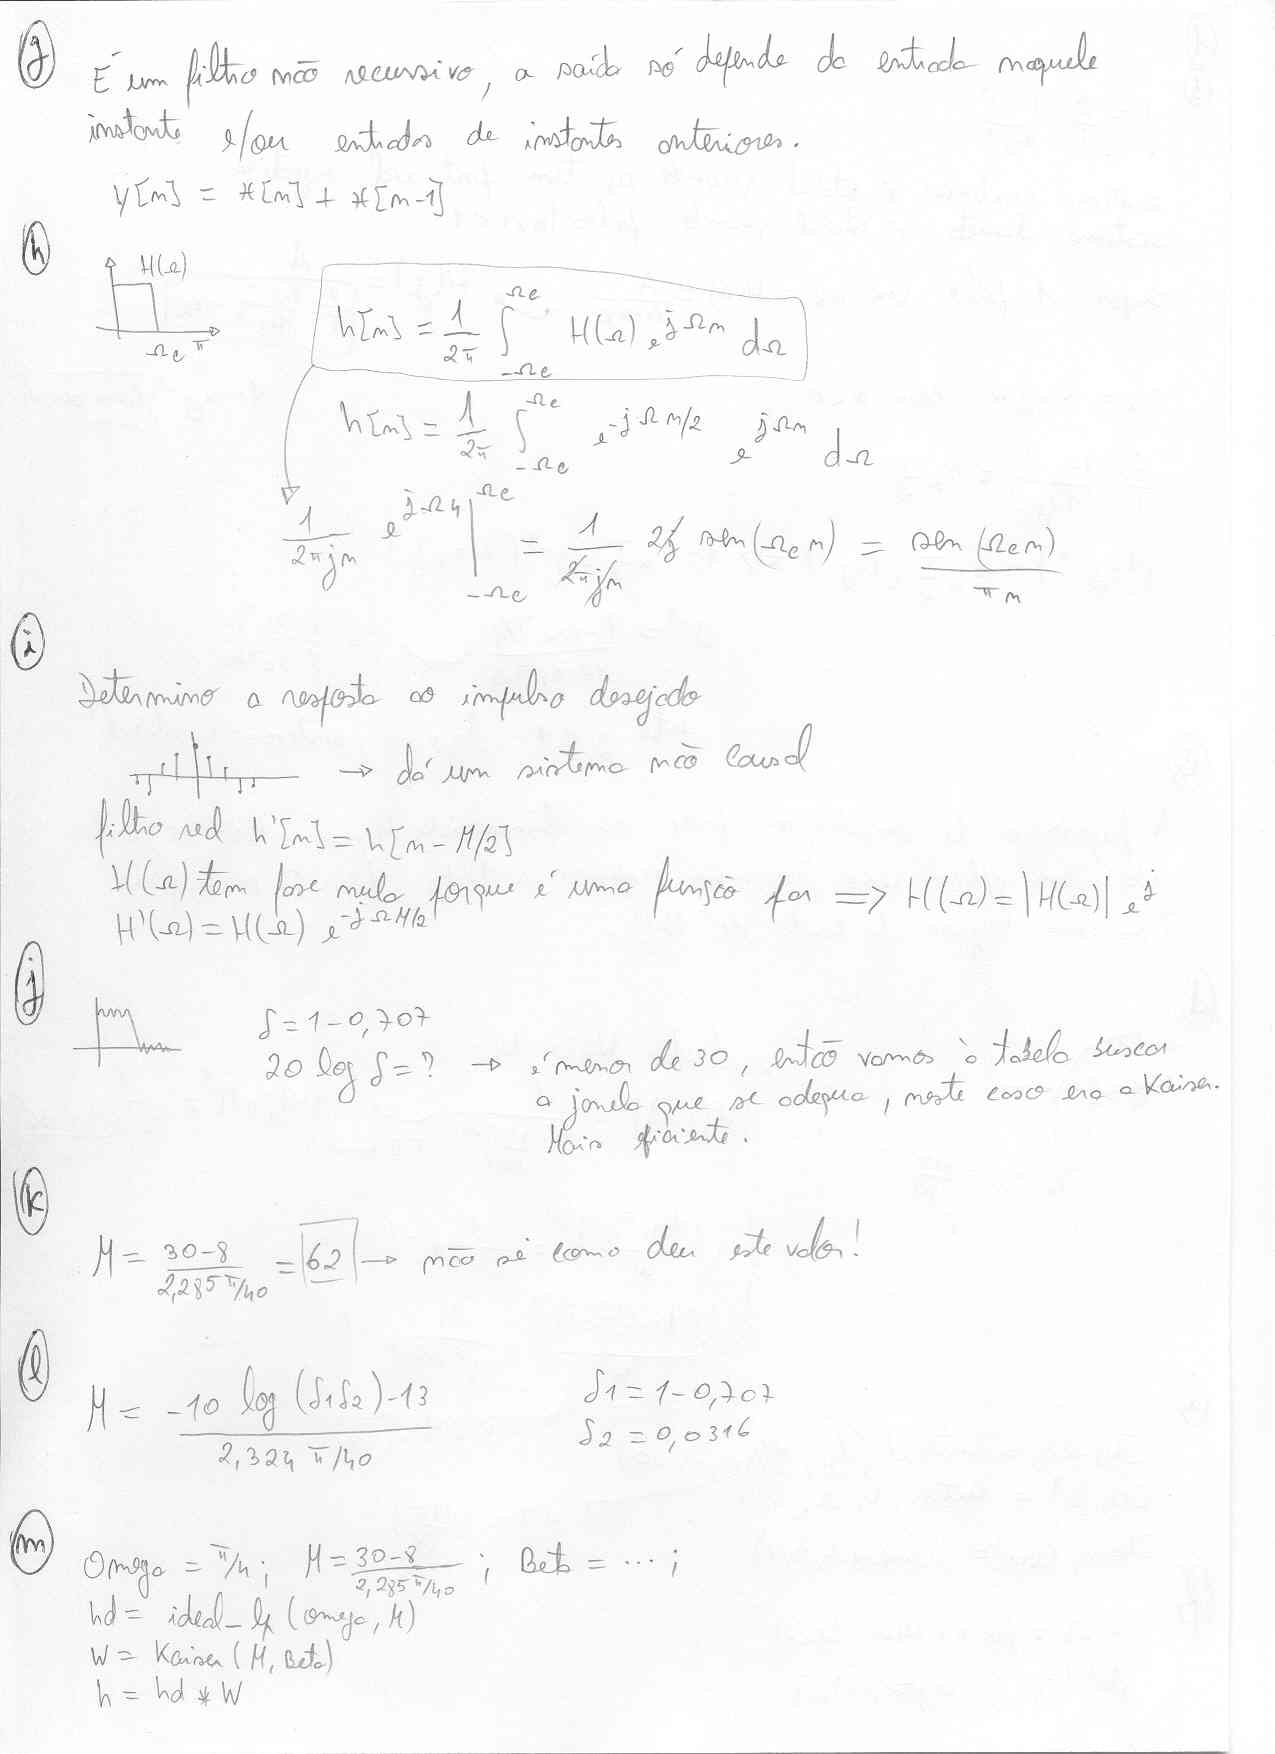 g
É um filtro não recursivo, a saída só depende da entrada naquele
instante e/ou entradas de instantes anteriores.
y[n] = x[n] + x[n-1]
h
H(Ω)
Ωc π
h[n] = 1/2π ∫_{-Ωc}^{Ωc} H(Ω) e^{jΩn} dΩ
h[n] = 1/2π ∫_{-Ωc}^{Ωc} e^{-jΩM/2} e^{jΩn} dΩ
1/2πjn e^{jΩn} |_{-Ωc}^{Ωc} = 1/2πjn 2j sen(Ωc n) = sen(Ωc n)/πn
i
Determino a resposta ao impulso desejado
→ dá um sistema não causal
filtro red h'[n] = h[n - M/2]
H(Ω) tem fase nula porque é uma função par => H(Ω) = |H(Ω)| e^j
H'(Ω) = H(Ω) e^{-jΩM/2}
j
δ = 1 - 0,707
20 log δ = ? → é menor de 30, então vamos à tabela buscar
a janela que se adequa, neste caso era a Kaiser.
Mais eficiente.
k
M = 30-8/2,285 π/40 = 62 → não sei como deu este valor!
l
M = -10 log (δ1δ2) - 13/2,324 π/40
δ1 = 1 - 0,707
δ2 = 0,0316
m
Omega = π/4; M = 30-8/2,285 π/40; Beta = ...;
hd = ideal_lp (omega, M)
W = Kaiser (M, Beta)
h = hd * W